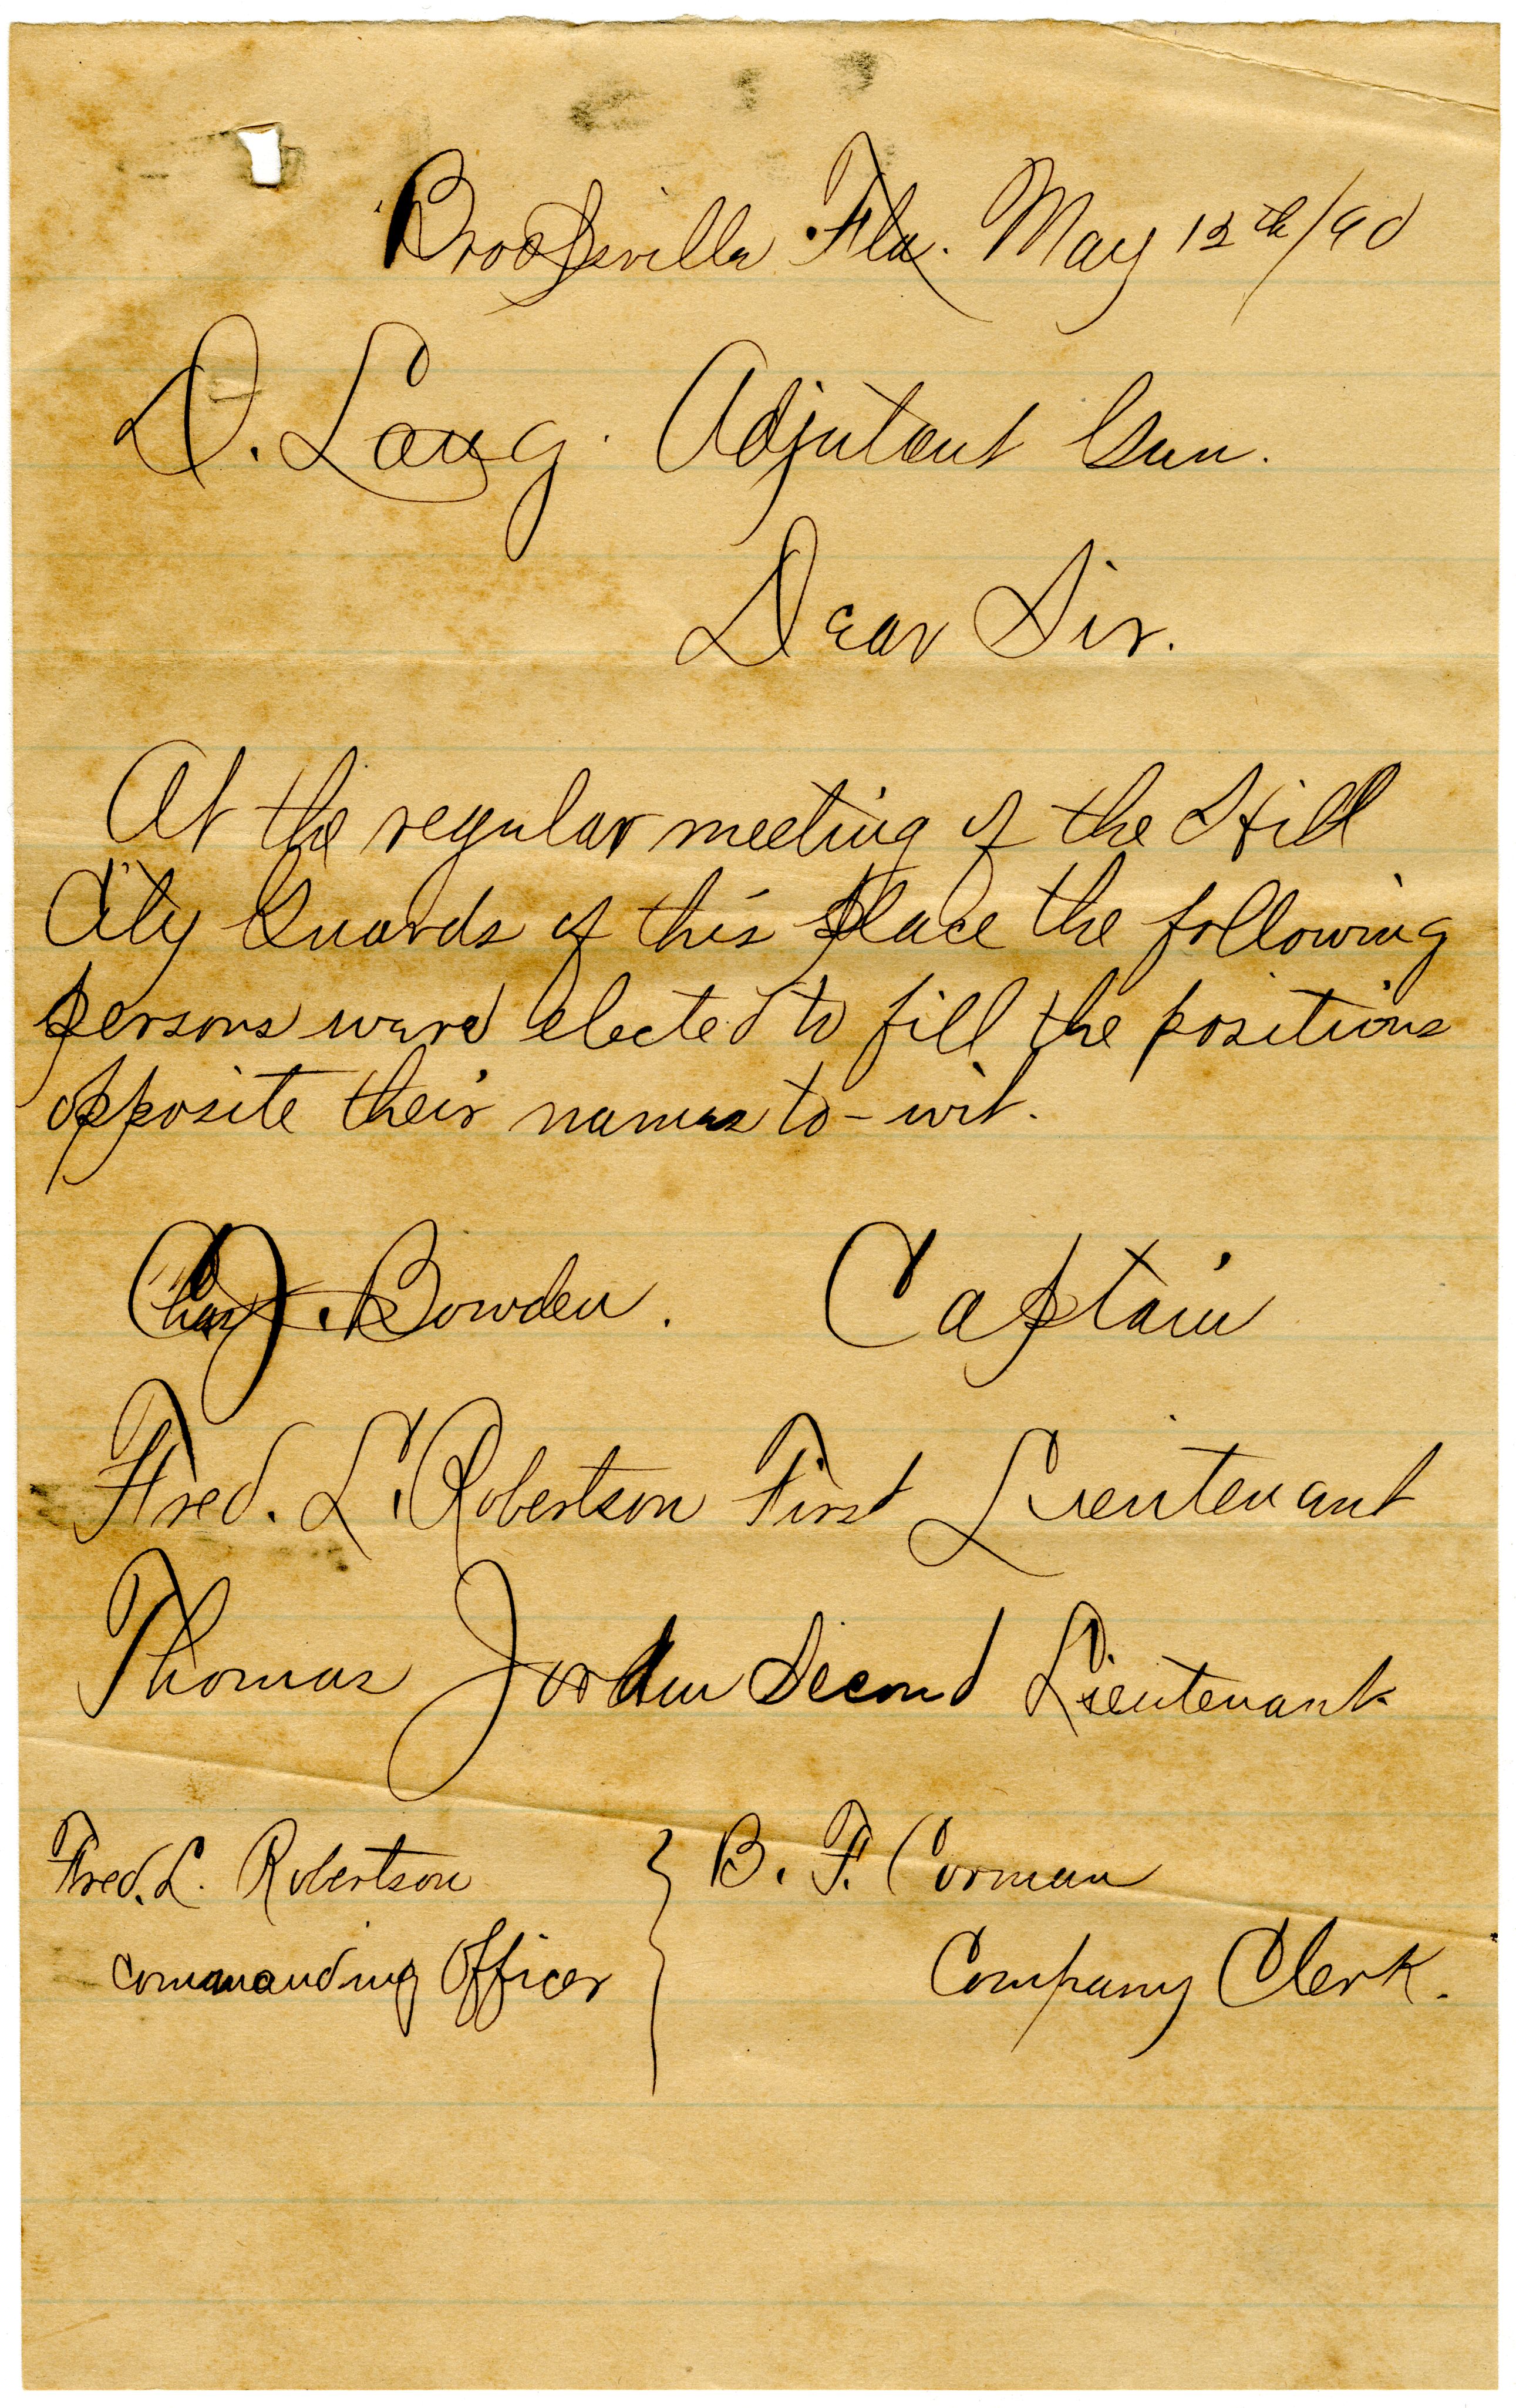 Brooksville Fla. May 12th/90
D. Lang. Adjutant Gen.
Dear Sir.
At the regular meeting of the Hill
City Guards of this place the following
persons were elected to fill the positions
opposite their names to-wit.
Chas J. Bowden. Captain
Fred. L. Robertson First Lieutenant
Thomas Jordan Second Lieutenant
Fred. L. Robertson } B. F. Corman
Commanding Officer Company Clerk.